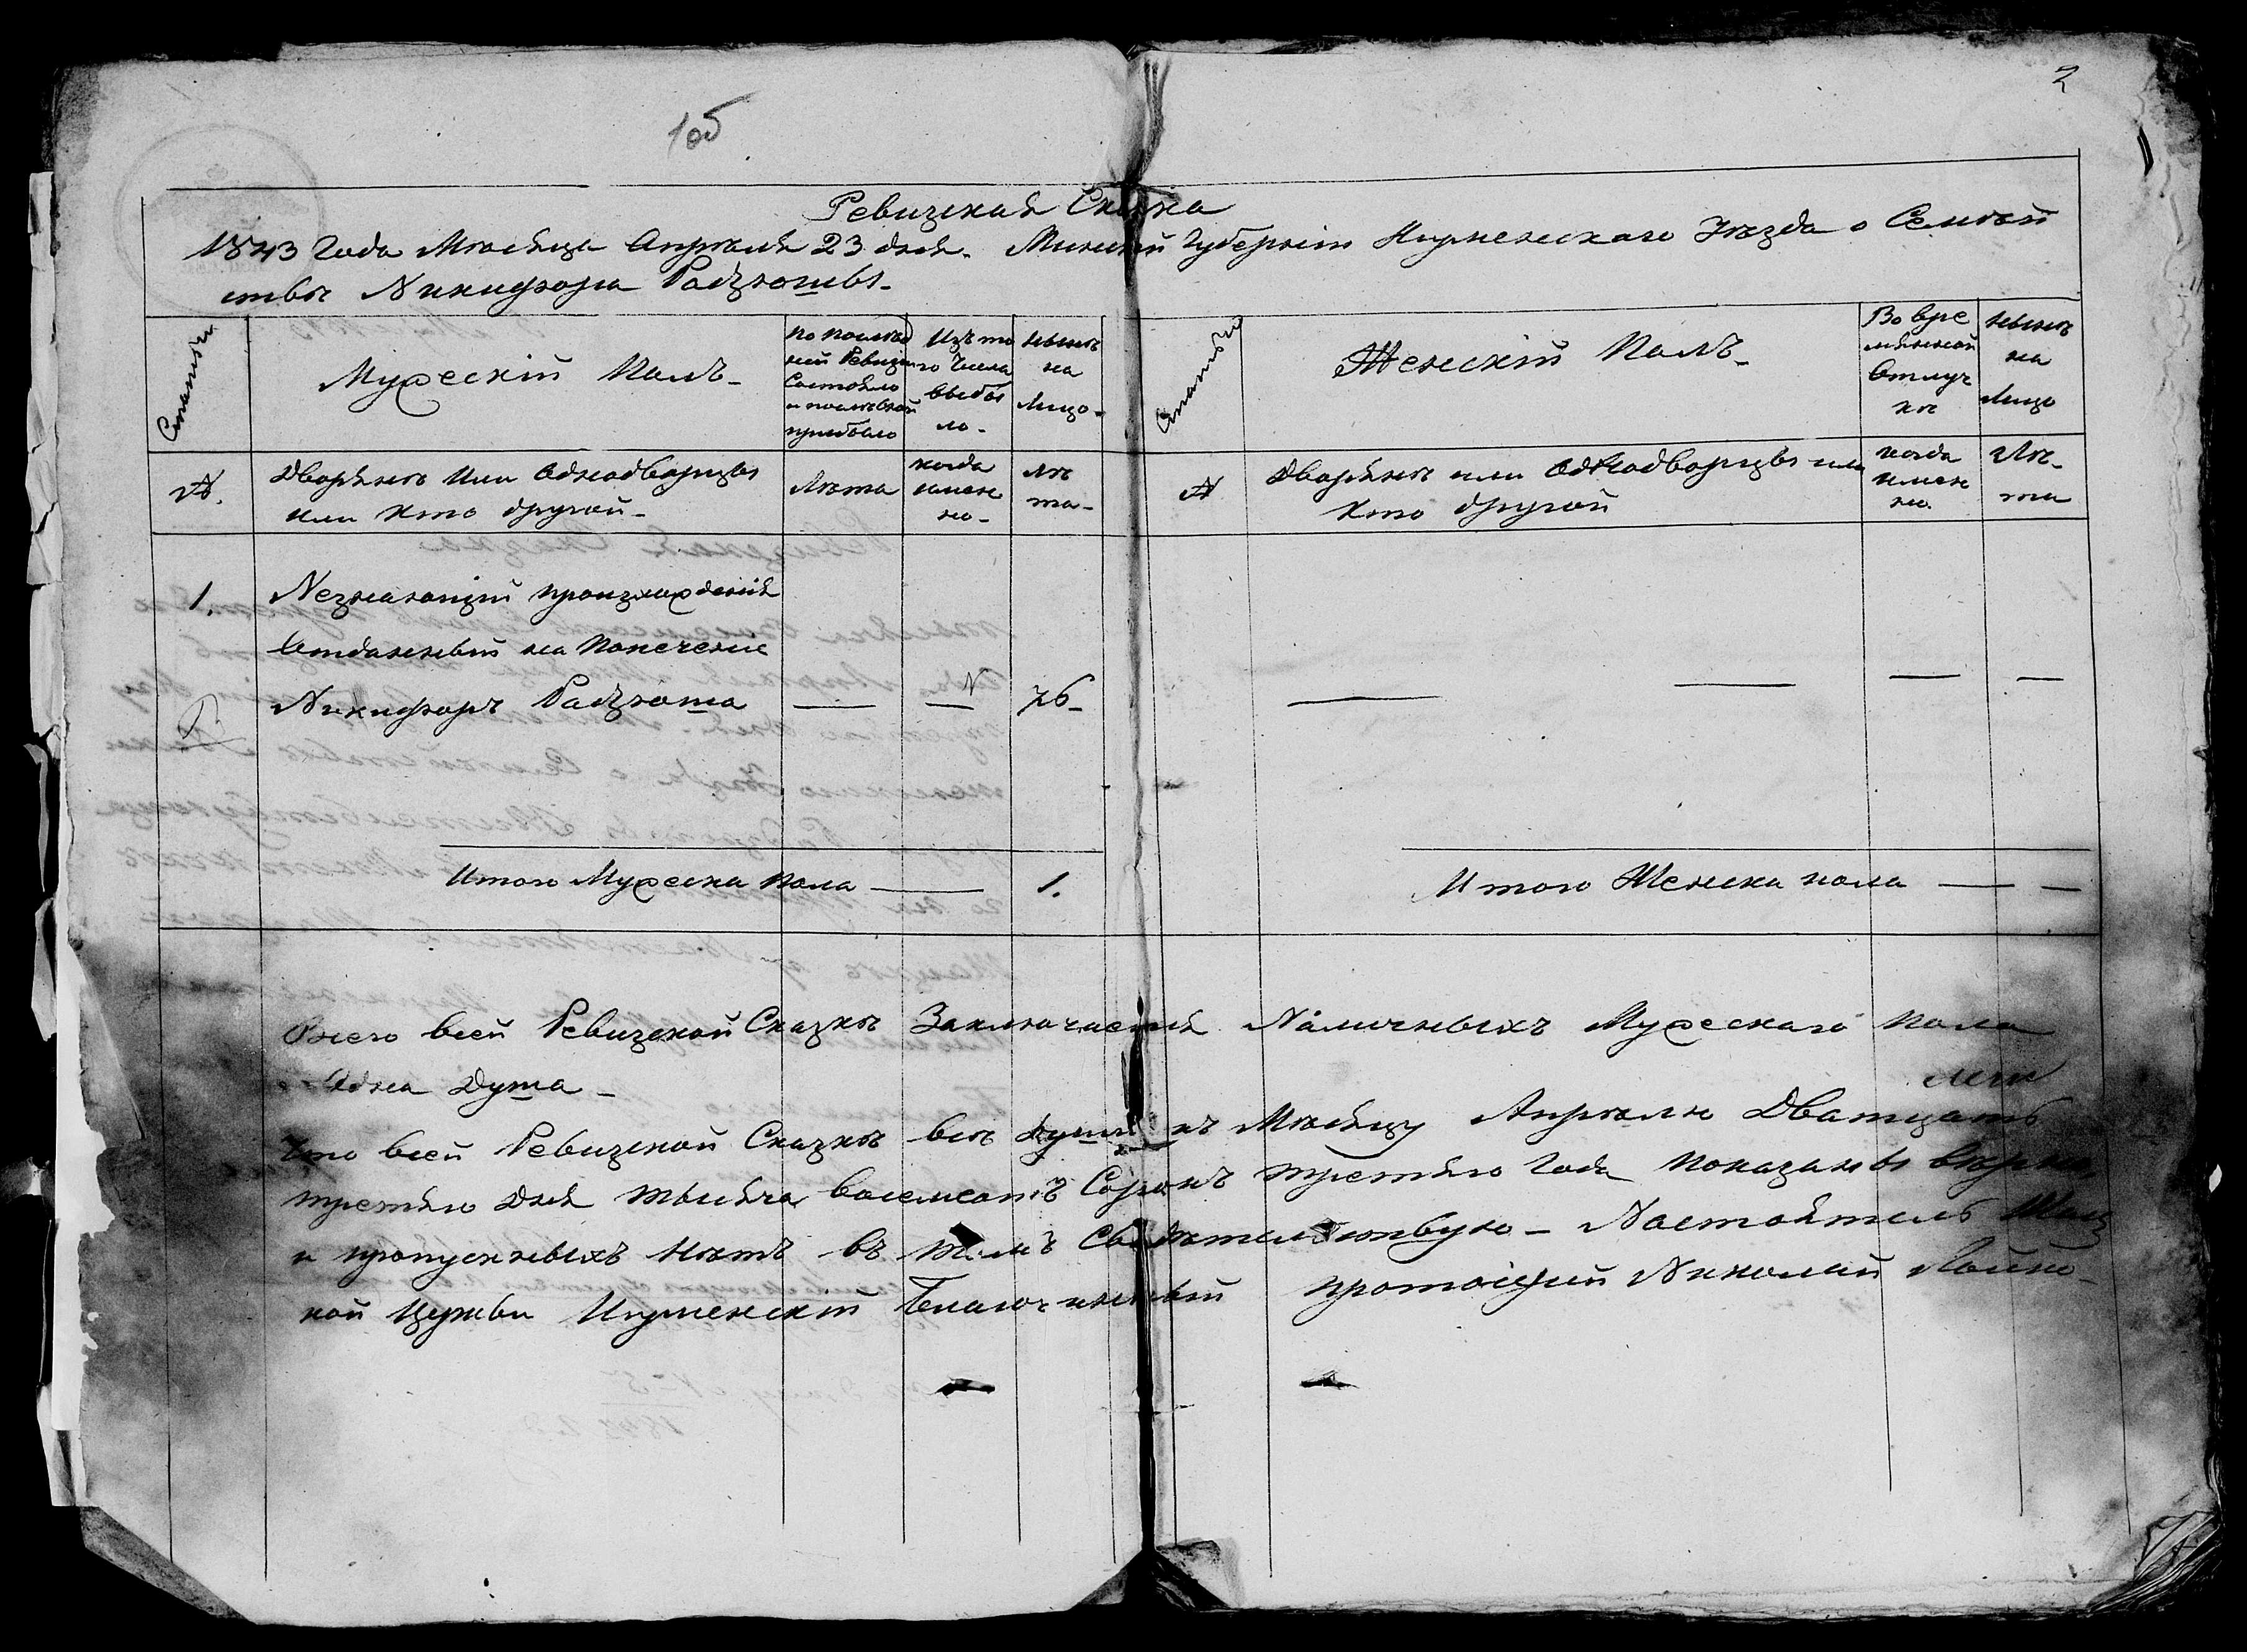 1об
2
Ревизская Сказка
1843 Года Месяца Апреля 23 дня. Минской Губернии Игуменскаго Уезда о Семей
стве Никифора Радзюшы.
Статьи
Мужескій Полъ
По послед
ней Ревизии
Состояло
и после оной
прибыло
Изъ то
го Числа
выбы
ло
ныне
на
Лицо
Статьи
Женскій Полъ
Во вре
менной
Отлуч
ке
ныне
на
Лицо
№.
Дворяне Или Однодворцы
или Кто другой
Лета
когда
имен
но
Ле
та
№
Дворяне или Однодворцы или
Кто другой
когда
имен
но.
Ле
та
1.
Незнающій происхожденія
Отданный на Попеченіе
Никифоръ Радзюша
76
Итого Мужеска Пола
1.
Итого Женска пола
Всего всей Ревизской Сказке Заключается Наличныхъ Мужескаго пола
Одна Душа
Что всей Ревизской Сказке все души къ Месяцу Апрелю Дватцать
третяго Дня тысяча восемсотъ Сорокъ третяго Года показаны верно
и пропускныхъ нетъ въ томъ Свидетелствую Настоятель
кой Церкви Игуменскій Благочинный протоіерей Николай